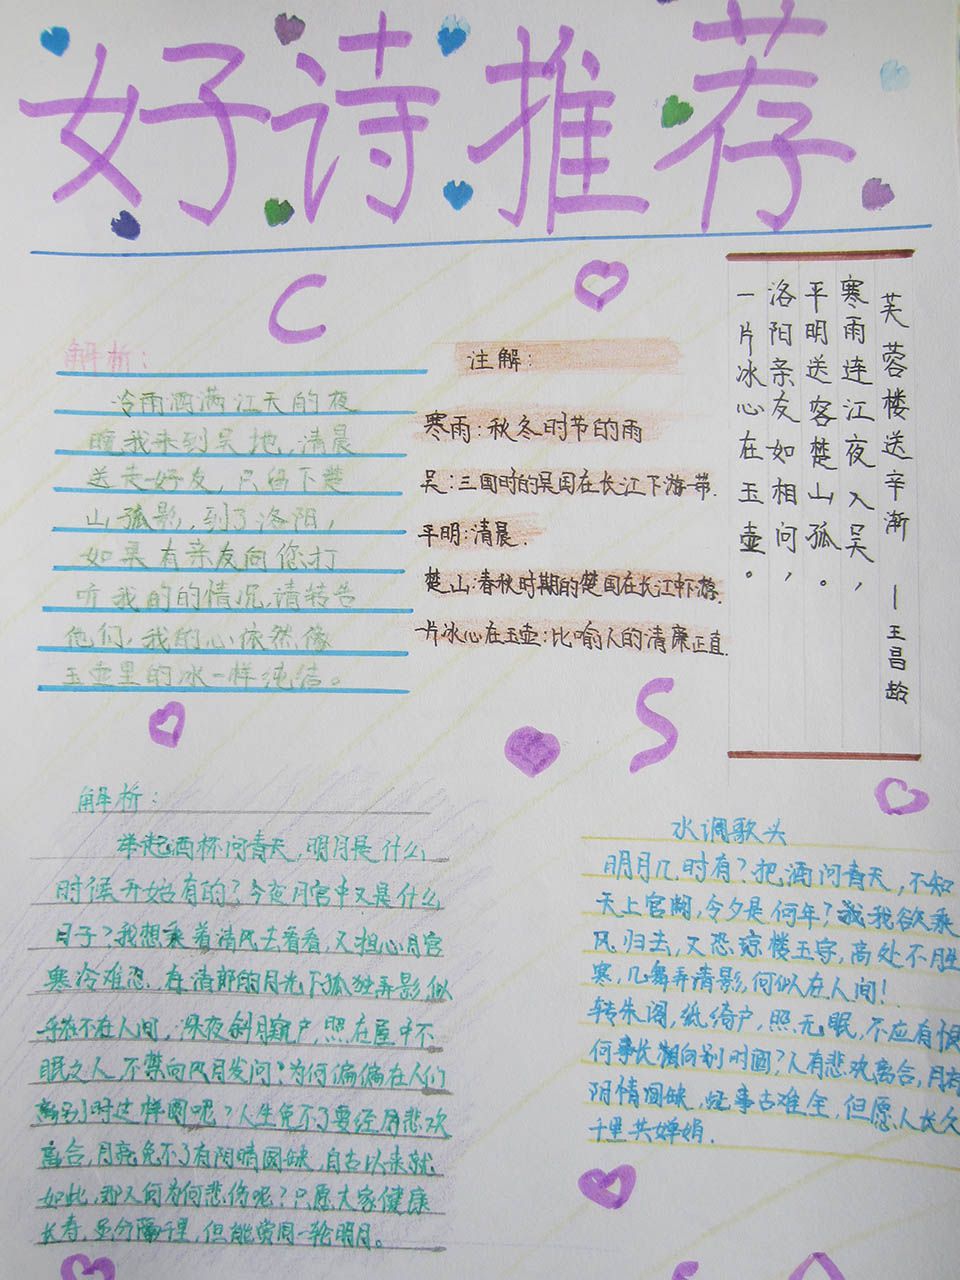 好诗推荐
C
芙蓉楼送辛渐 —王昌龄
寒雨连江夜入吴，
平明送客楚山孤。
洛阳亲友如相问，
一片冰心在玉壶。
注解：
寒雨：秋冬时节的雨
吴：三国时的吴国在长江下游一带.
平明：清晨.
楚山：春秋时期的楚国在长江中下游.
一片冰心在玉壶：比喻人的清廉正直.
解析：
冷雨洒满江天的夜
晚我来到吴地，清晨
送走好友，只留下楚
山孤影，到了洛阳，
如果有亲友向您打
听我的的情况，请转告
他们，我的心依然像
玉壶里的冰一样纯洁。
S
水调歌头
明月几时有？把酒问青天，不知
天上宫阙，今夕是何年？我欲乘
风归去，又恐琼楼玉宇，高处不胜
寒，几舞弄清影，何似在人间！
转朱阁，纸绮户，照无眠，不应有恨
何事长相向别时圆？人有悲欢离合，月有
阴情圆缺，此事古难全，但愿人长久
千里共婵娟.
解析：
举起酒杯问青天，明月是什么
时候开始有的？今夜月宫中又是什么
日子？我想乘着清风去看看，又担心月宫
寒冷难忍，在清郎的月光下孤独弄影似
乎不在人间，深夜斜月窥户，照在屋中不
眠之人，不禁向风月发问：为何偏偏在人们
离别时这样圆呢？人生免不了要经历悲欢
离合，月亮免不了有阴晴圆缺，自古以来就
如此，那又何为何悲伤呢？只愿大家健康
长寿，虽分隔千里，但能赏同一轮明月。
S